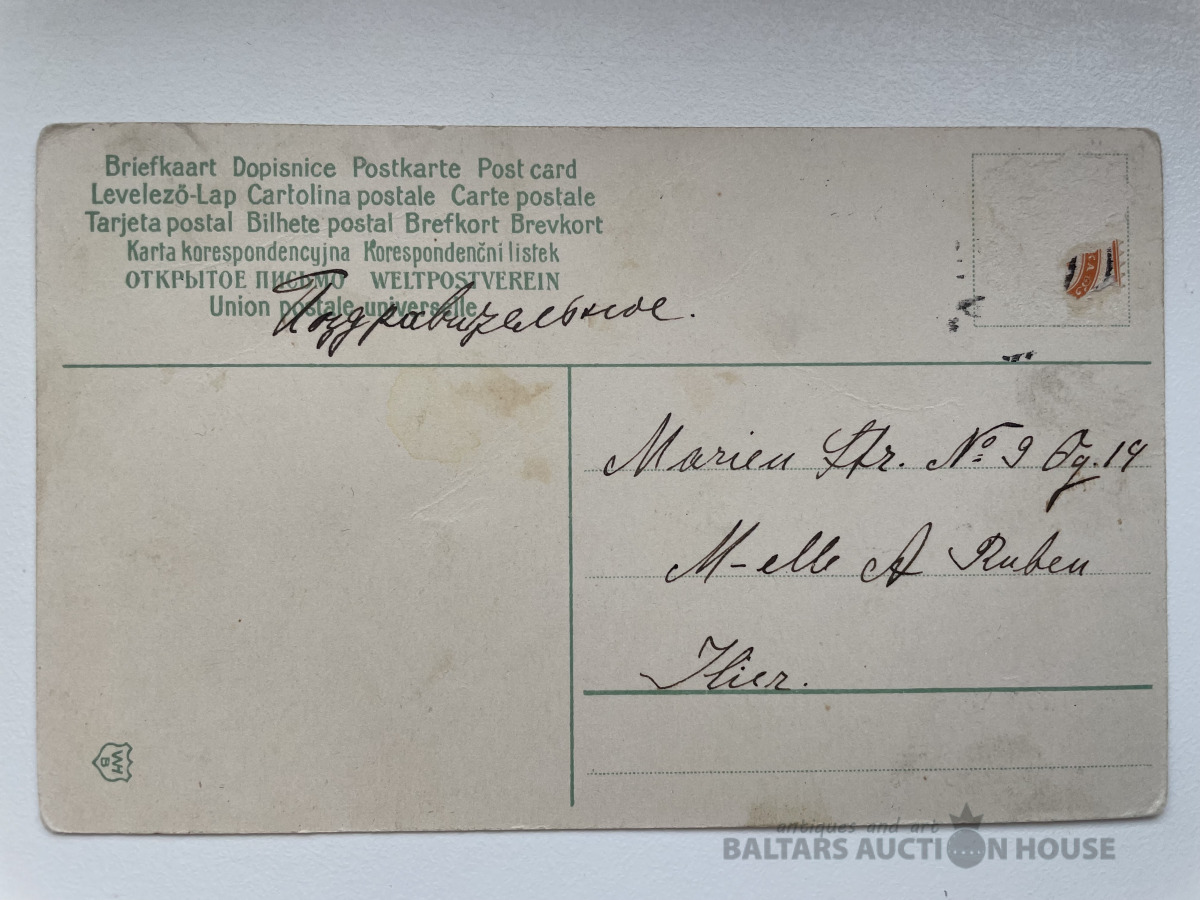 Briefkaart Dopisnice Postkarte Post card
Levelező-Lap Cartolina postale Carte postale
Tarjeta postal Bilhete postal Brefkort Brevkort
Karta korespondencyjna Korespondenční listek
ОТКРЫТОЕ ПИСЬМО WELTPOSTVEREIN
Union postale universelle
Поздравительное.
Marien Str. № 9 Qg. 14
M-elle A Ruben
Hier.
WH
B
antiques and art
BALTARS AUCTION HOUSE